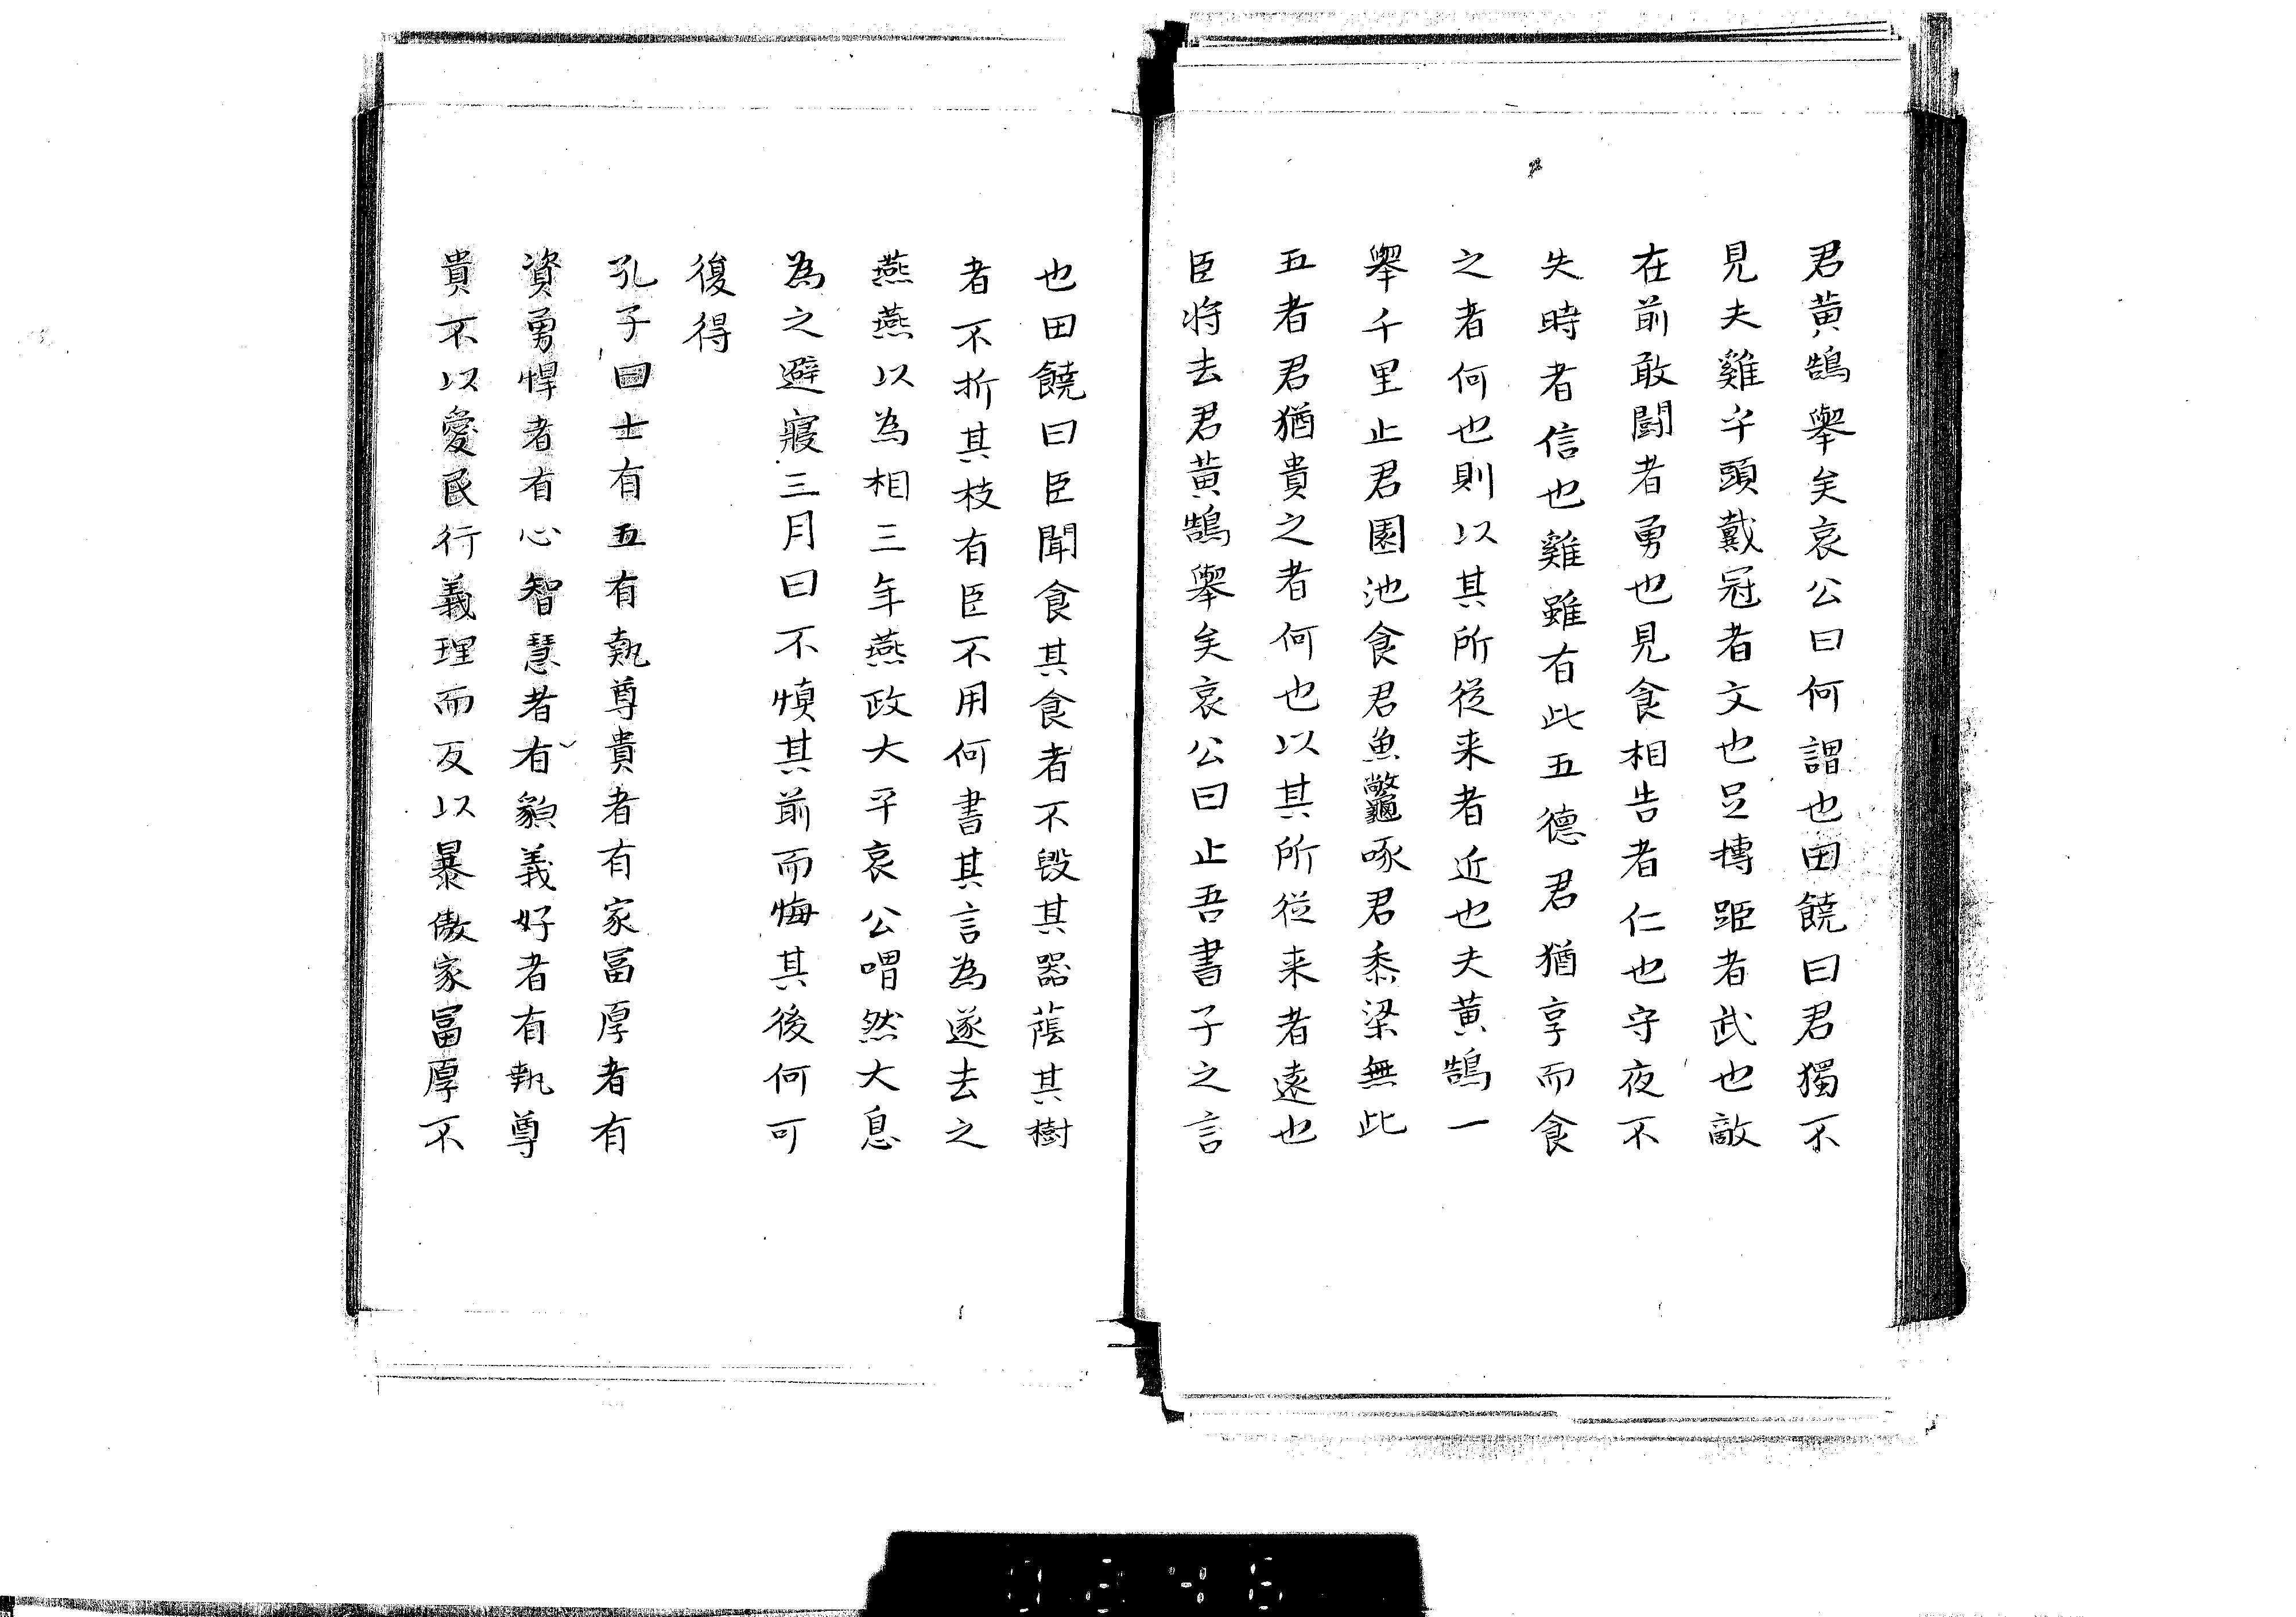 君黄鵠舉矣哀公曰何謂也田饒曰君獨不
見夫雞乎頭戴冠者文也足搏距者武也敵
在前敢闘者勇也見食相告者仁也守夜不
失時者信也雞雖有此五德君猶享而食
之者何也則以其所従来者近也夫黄鵠一
舉千里止君園池食君魚鼈啄君黍梁無此
五者君猶貴之者何也以其所従来者遠也
臣将去君黄鵠舉矣哀公曰止吾書子之言
也田饒曰臣聞食其食者不毀其器蔭其樹
者不折其枝有臣不用何書其言為遂去之
燕燕以為相三年燕政大平哀公喟然大息
為之避寢三月曰不慎其前而悔其後何可
復得
孔子曰士有五有執尊貴者有家冨厚者有
資勇悍者有心智慧者有貌義好者有執尊
貴不以愛民行義理而反以暴傲家冨厚不